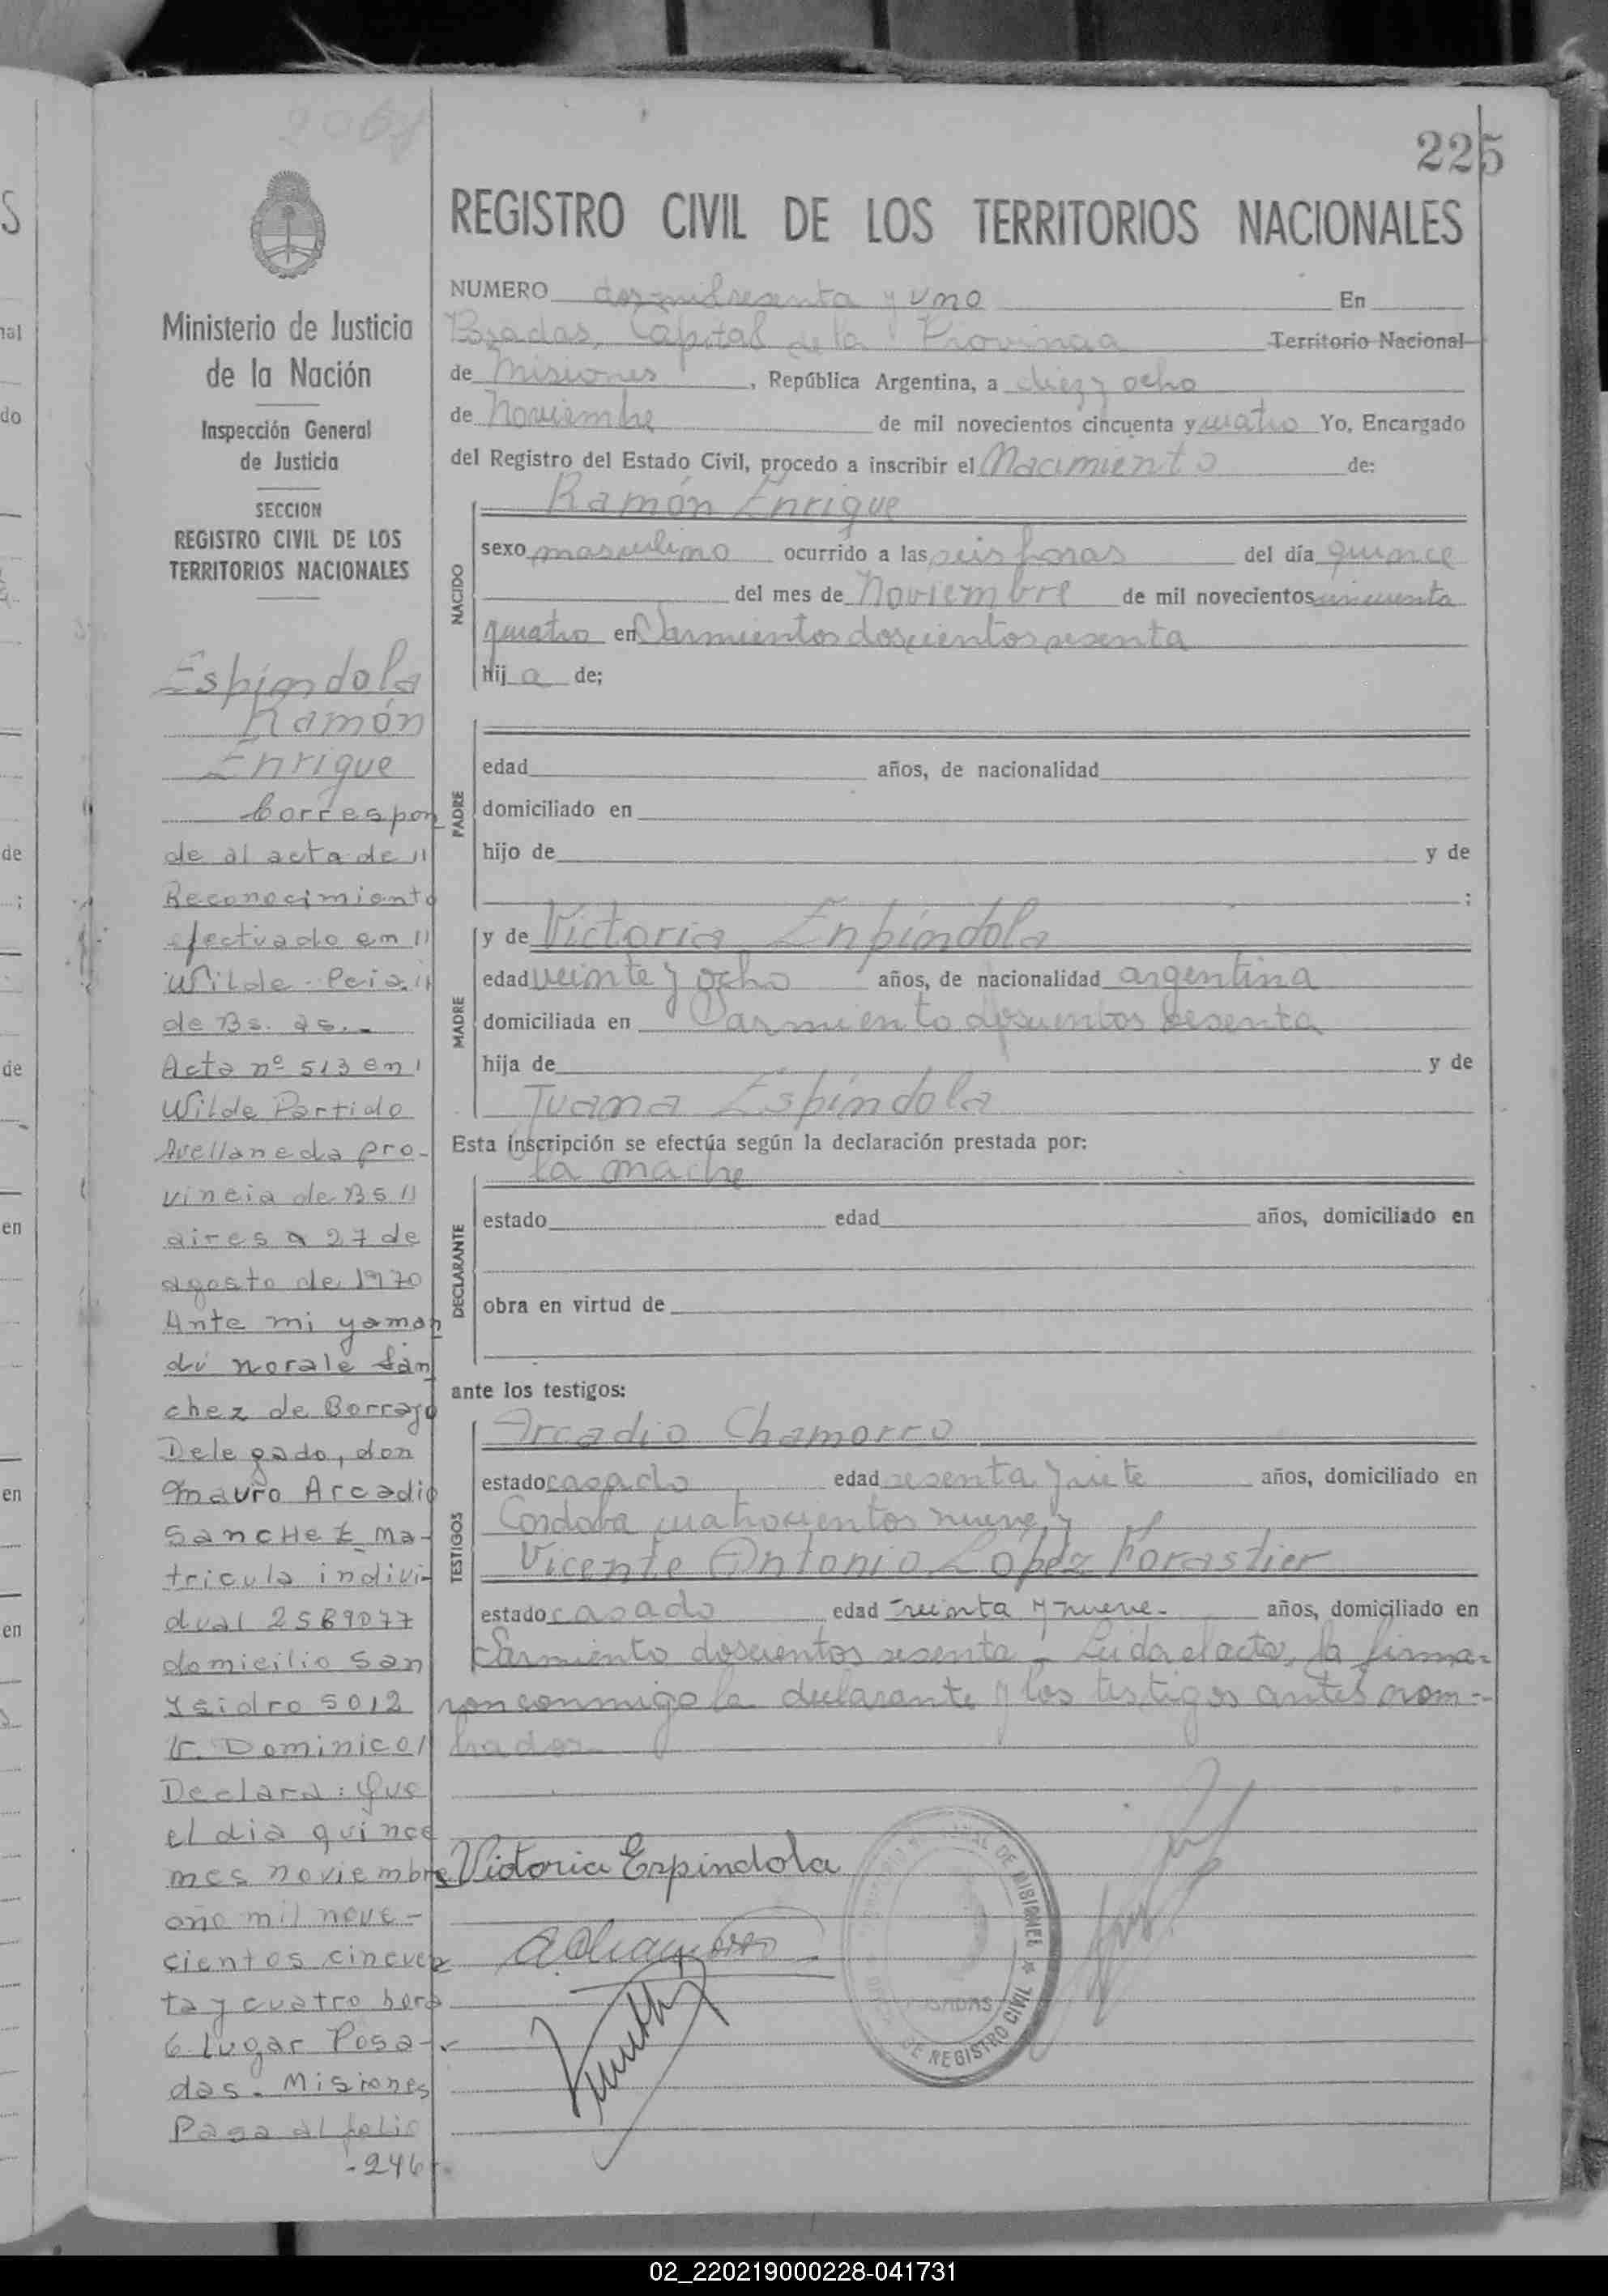 2061
225
REGISTRO CIVIL DE LOS TERRITORIOS NACIONALES
Ministerio de Justicia
de la Nación
Inspección General
de Justicia
SECCION
REGISTRO CIVIL DE LOS
TERRITORIOS NACIONALES
Espíndola
Ramón
Enrique
Correspon
de al acta de "
Reconocimiento
efectuado en "
Wilde - Pcia. "
de Bs. as. -
Acta nº 513 en
Wilde Partido
Avellaneda pro-
vincia de Bs "
aires a 27 de
agosto de 1970
Ante mi yaman
dú norale Sán
chez de Borrajo
Delegado, don
Mauro Arcadio
SancHeZ Ma-
tricula indivi-
dual 2589077
domicilio San
Ysidro 5012
V. Dominico "
Declara: Que
el dia quince
mes noviembre
año mil nove-
cientos cincuen
ta y cuatro hora
6 lugar Posa-
das - Misiones
Pasa al folio
- 246
NUMERO dos mil sesenta y uno En
Posadas, Capital de la Provincia Territorio Nacional
de Misiones, República Argentina, a diez y ocho
de Noviembre de mil novecientos cincuenta y cuatro Yo, Encargado
del Registro del Estado Civil, procedo a inscribir el Nacimiento de:
Ramón Enrique
NACIDO
sexo masculino ocurrido a las seis horas del día quince
del mes de Noviembre de mil novecientos cincuenta
y cuatro en Sarmientos doscientos sesenta
hij a de;
PADRE
edad años, de nacionalidad
domiciliado en
hijo de y de
;
MADRE
y de Victoria Enpíndola
edad veinte y ocho años, de nacionalidad argentina
domiciliada en Sarmiento doscientos sesenta
hija de y de
Juana Espíndola
Esta inscripción se efectúa según la declaración prestada por:
la madre
DECLARANTE
estado edad años, domiciliado en
obra en virtud de
ante los testigos:
TESTIGOS
Arcadio Chamorro
estado casado edad sesenta y siete años, domiciliado en
Cordoba cuatrocientos nueve y
Vicente Antonio López Forastier
estado casado edad treinta y nueve.- años, domiciliado en
Sarmiento doscientos sesenta - Leida el acta, la firma-
ron conmigo la declarante y los testigos antes nom-
brados
Victoria Espindola
AChamorro
DE MISIONES ★
POSADAS
DE REGISTRO CIVIL
02_220219000228-041731